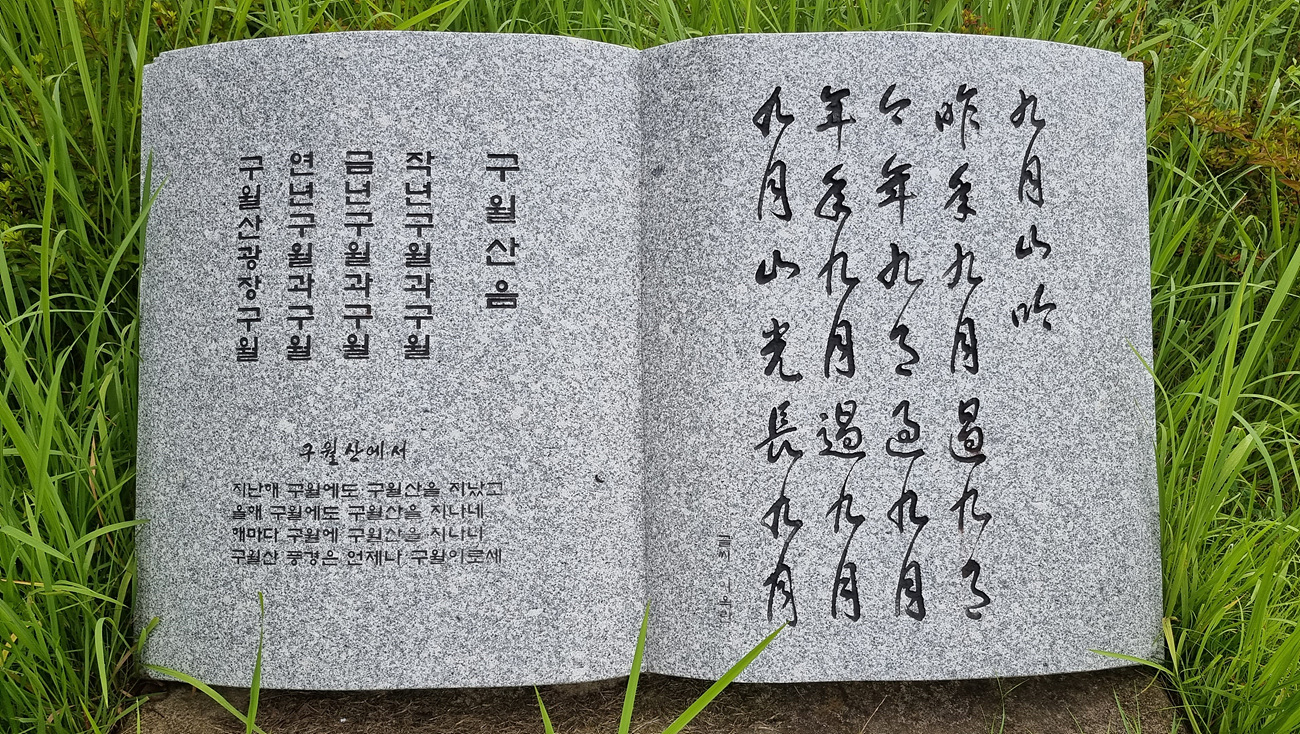 九月山吟
昨年九月過九月
今年九月過九月
年年九月過九月
九月山光長九月
글씨
구월산음
작년구월과구월
금년구월과구월
연년구월과구월
구월산광장구월
구월산에서
지난해 구월에도 구월산을 지났고
올해 구월에도 구월산을 지나네
해마다 구월에 구월산을 지나니
구월산 풍경은 언제나 구월이로세